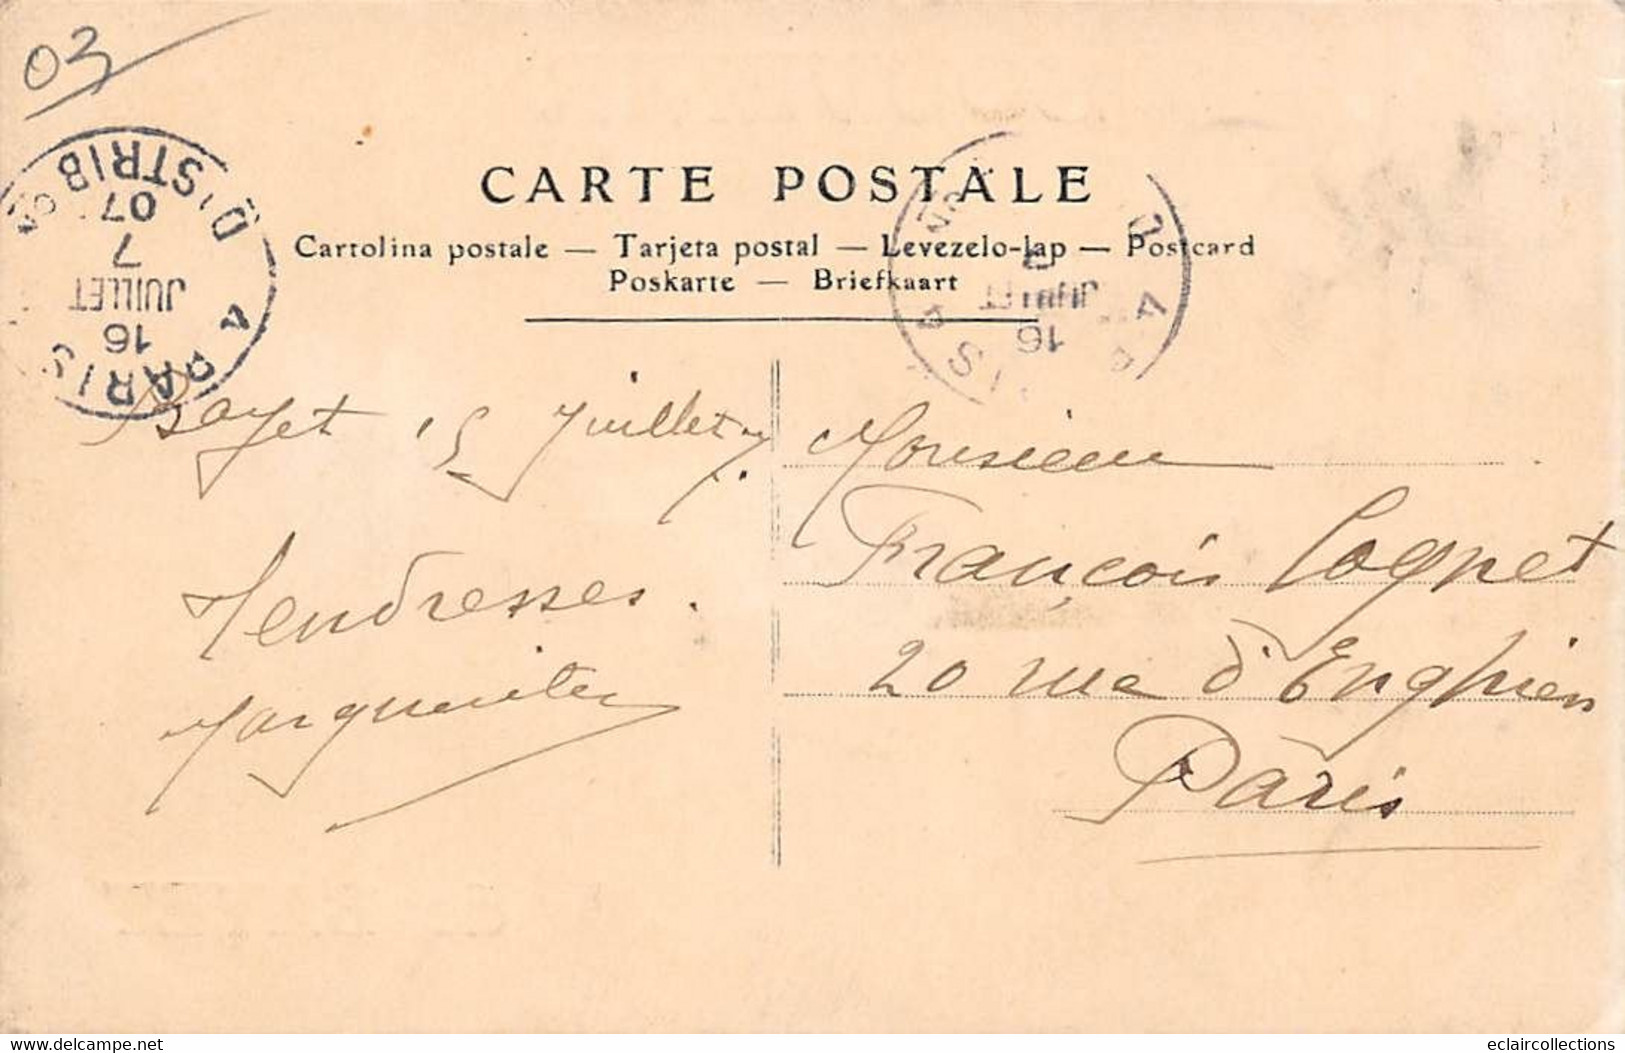 03
PARIS DISTRIBON
16
JUILLET
7
07
CARTE POSTALE
Cartolina postale — Tarjeta postal — Levezelo-lap — Postcard
Poskarte — Briefkaart
16
JUILLET
7
Bayet 15 Juillet 7.
Tendresses.
Marguerite
Monsieur
François Cognet
20 rue d'Enghien
Paris
delcampe.net
eclaircollections